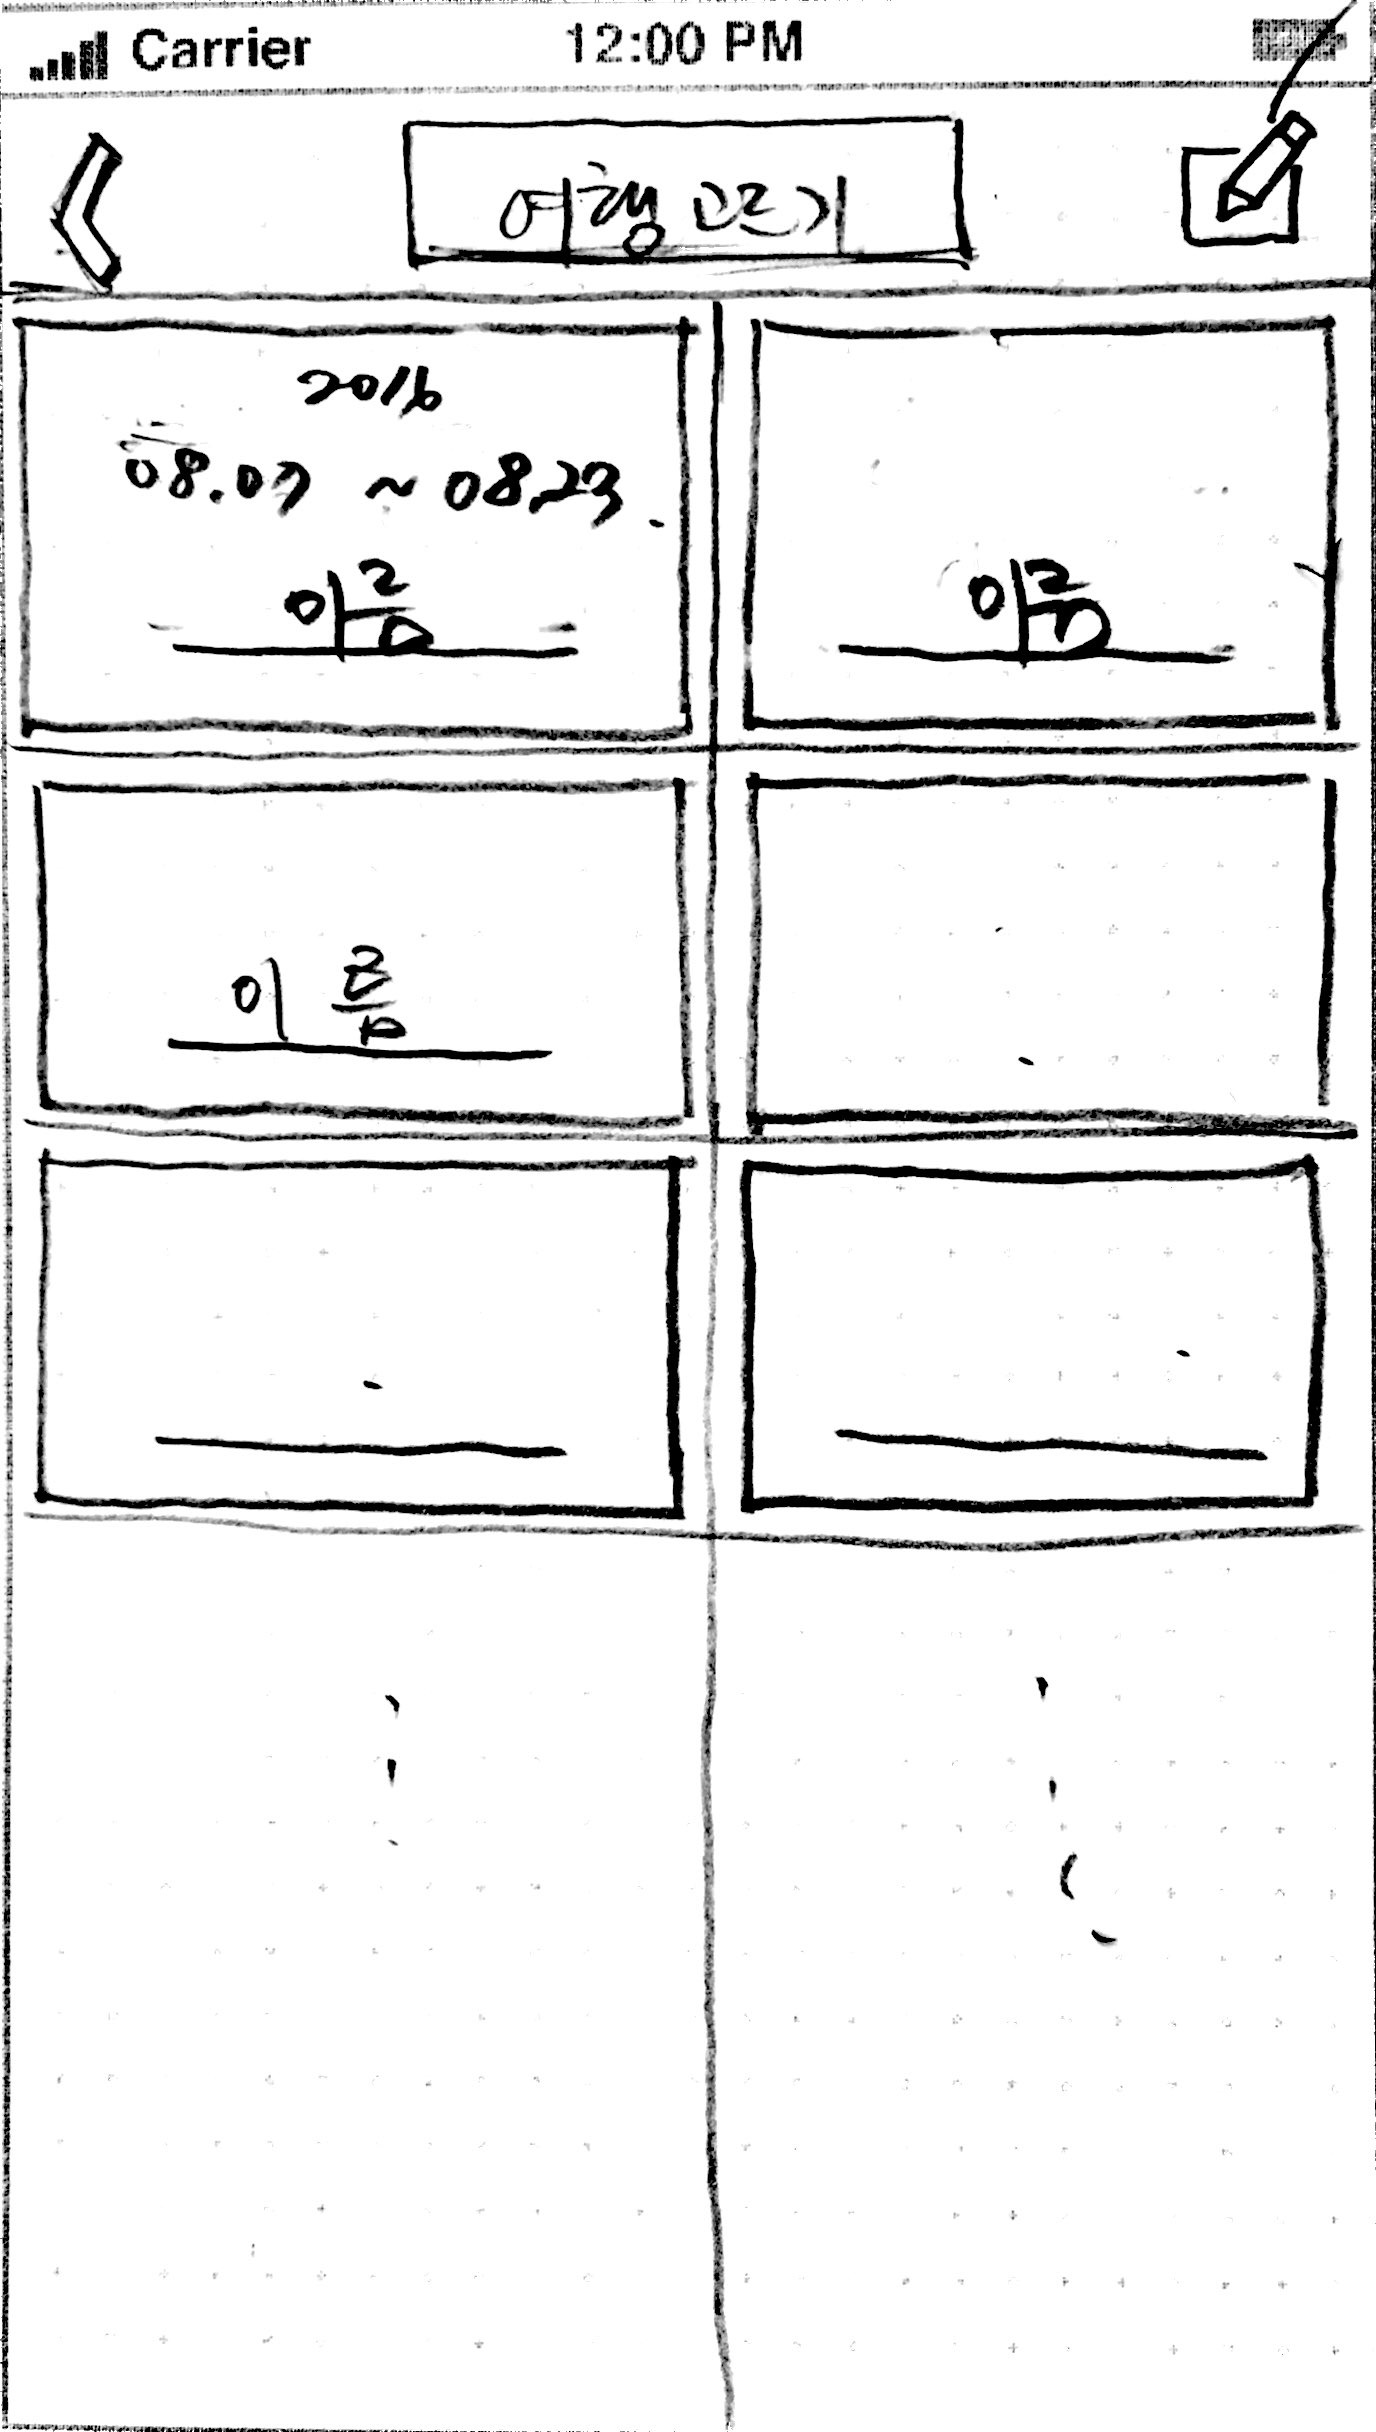 Carrier 12:00 PM
여행
2016
08.07 ~ 08.23.
이름 이름
이름